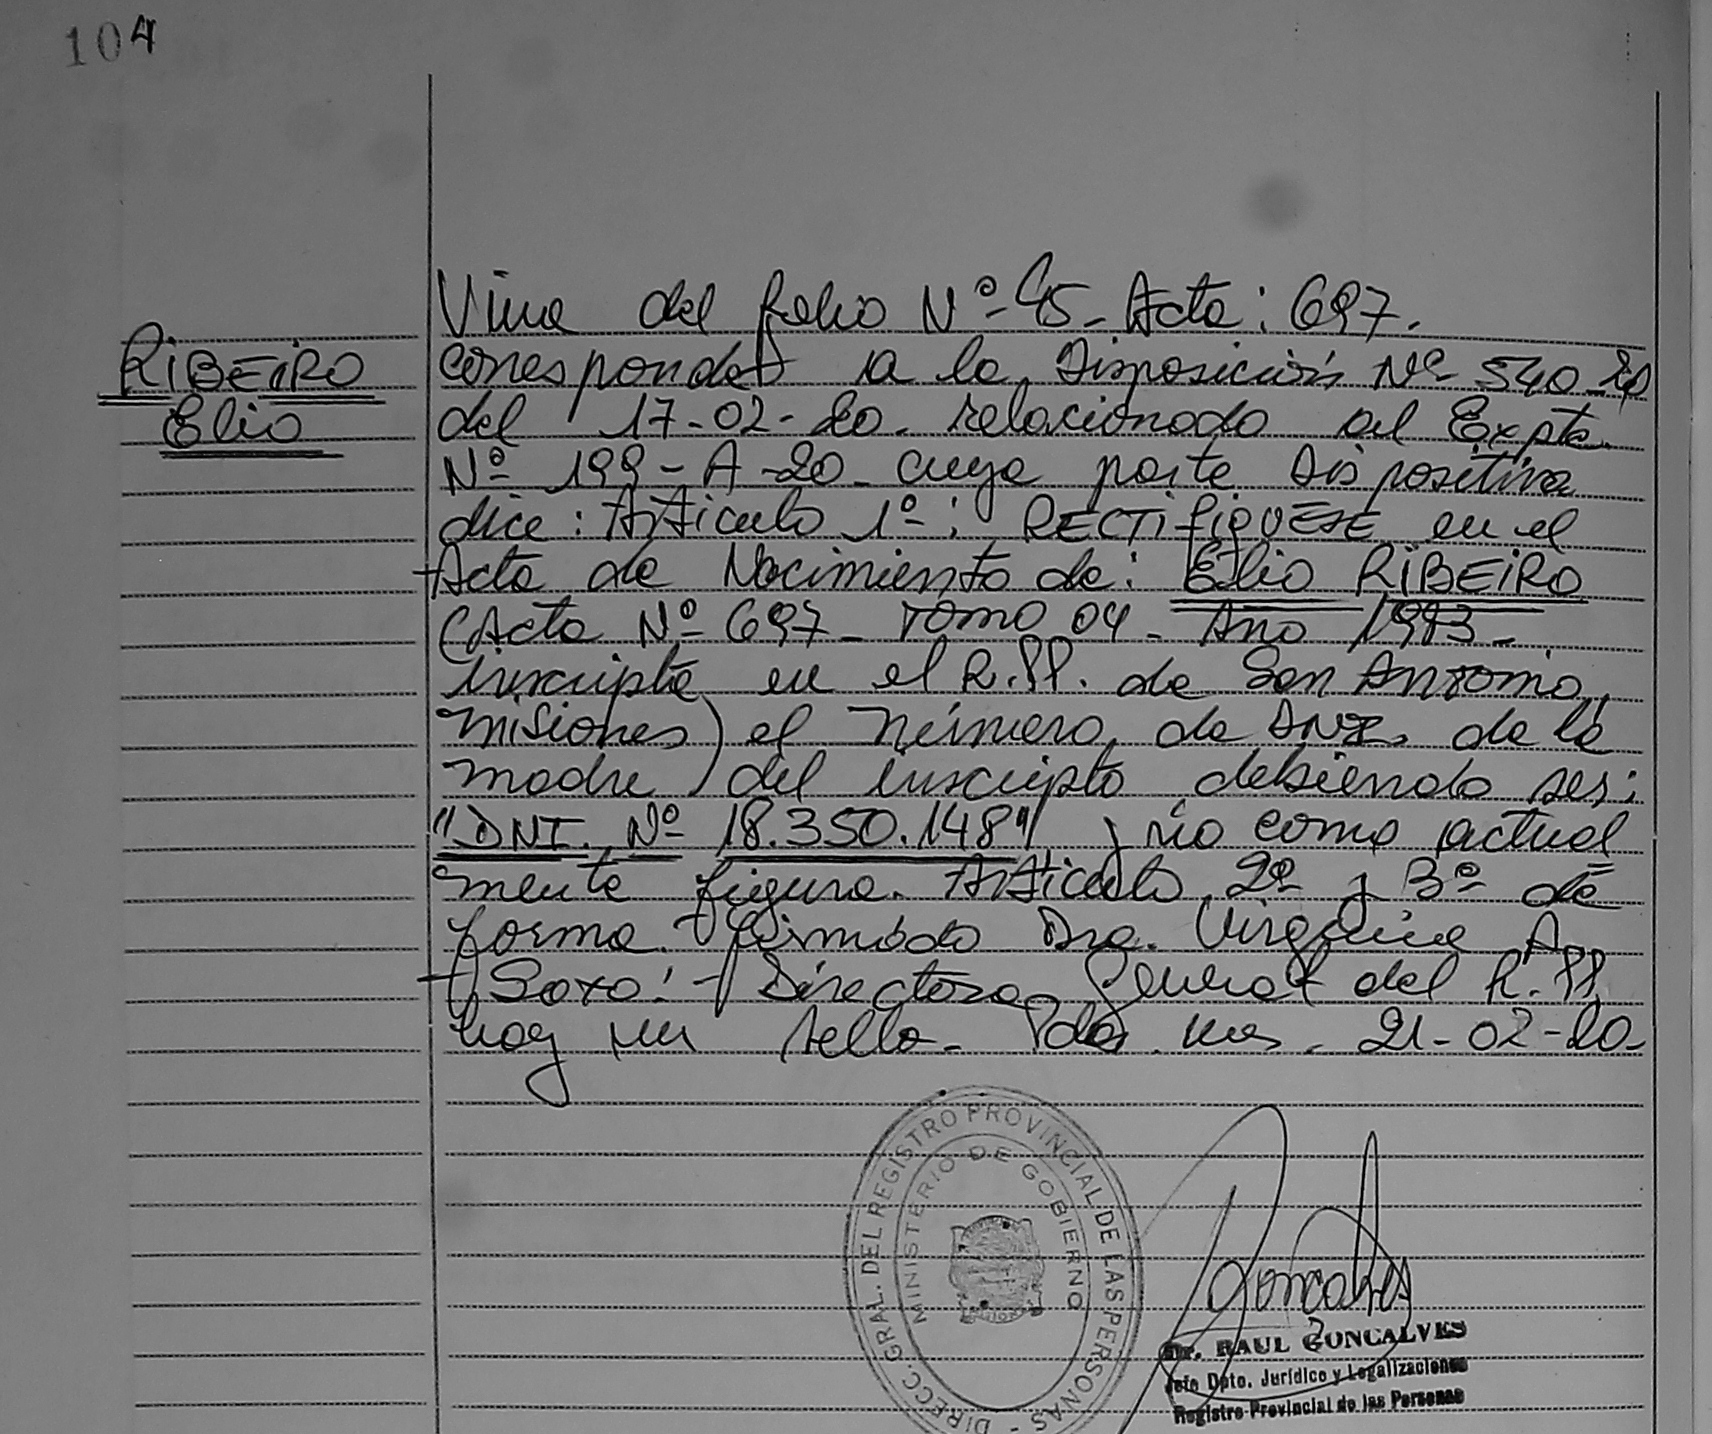 104
Viene del folio Nº 45- Acta: 697.
RIBEIRO
Elio
corresponde a la Disposición Nº 540-20
del 17-02-20. relacionado al Expte.
Nº 199-A-20- cuya parte Dispositiva
dice: Artículo 1º: RECTIFIQUESE en el
Acta de Nacimiento de: Elio RIBEIRO
(Acta Nº 697- Tomo 04- Año 1993-
Inscripta en el R.PP. de San Antonio,
Misiones) el número de DNI. de la
madre del inscripto debiendo ser:
"DNI. Nº 18.350.148" y no como actual
mente figura. Artículo 2º y 3º de
forma. Firmado Dra. Virginia A.
Soto. Directora General del R.PP.
hay un sello. Pdas. Mns. 21-02-20-
DIRECC. GRAL. DEL REGISTRO PROVINCIAL DE LAS PERSONAS -
MINISTERIO DE GOBIERNO
Goncalves
Dr. RAUL GONCALVES
Jefe Dpto. Jurídico y Legalizaciones
Registro Provincial de las Personas